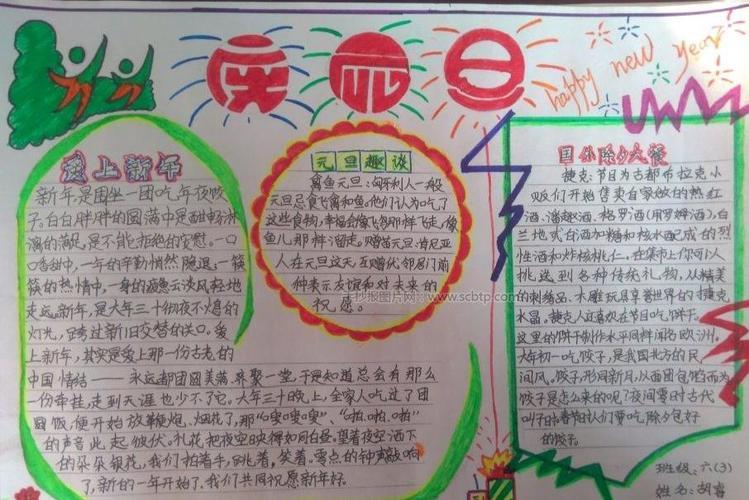 庆元旦
happy new year
爱上新年
新年,是围坐一团吃年夜饺
子。白白胖胖的圆满中是甜畅淋
漓的满足,是不能拒绝的安慰。一口
口香甜中,一年的辛勤悄然隐退;一筷
筷的热情中,一身的疲惫云淡风轻地
走远。新年,是大年三十彻夜不熄的
灯光,跨过新旧交替的关口。爱
上新年,其实是爱上那一份古老的
中国情结——永远都团圆美满、齐聚一堂,于是知道总会有那么
一份牵挂,走到天涯也少不了它。大年三十晚上,全家人吃过了团
圆饭,便开始放鞭炮、烟花了,那“嗖嗖嗖”、“啪、啪、啪”
的声音此起彼伏。礼花把夜空映得如同白昼。望着夜空洒下
的朵朵银花,我们拍着手,跳着,笑着。零点的钟声敲响
了,新的一年开始了,我们共同祝愿新年好。
元旦趣谈
禽鱼元旦:匈牙利人一般
元旦忌食飞禽和鱼,他们认为吃了
这些食物,幸福会像飞鸟那样飞走,像
鱼儿那样溜走。赠苗元旦:肯尼亚
人在元旦这天,互赠状邻居门前
种表示友谊和对未来的
祝愿。
手抄报图片网 www.scbtp.com
国外除夕大餐
捷克:节日为古都布拉克小
贩们开始售卖自家做的热红
酒、潘趣酒、格罗酒(用罗姆酒)、白
兰地或白酒加糖和核水配成的烈
性酒和炸核桃仁。在集市上你可以
挑选到各种传统礼物,从精美
的刺绣品、木雕玩具享誉世界的捷克
水晶。捷克人还喜欢在节日吃饼干。
这里的饼干制作水平同样闻名欧洲。
大年初一吃饺子,是我国北方的民
间风。饺子,形同新月,从面团包馅而为
饺子是怎么来的呢?夜间零时古代
叫子时春节时人们要吃除夕包好
的饺子。
班级:六(3)
姓名:胡睿